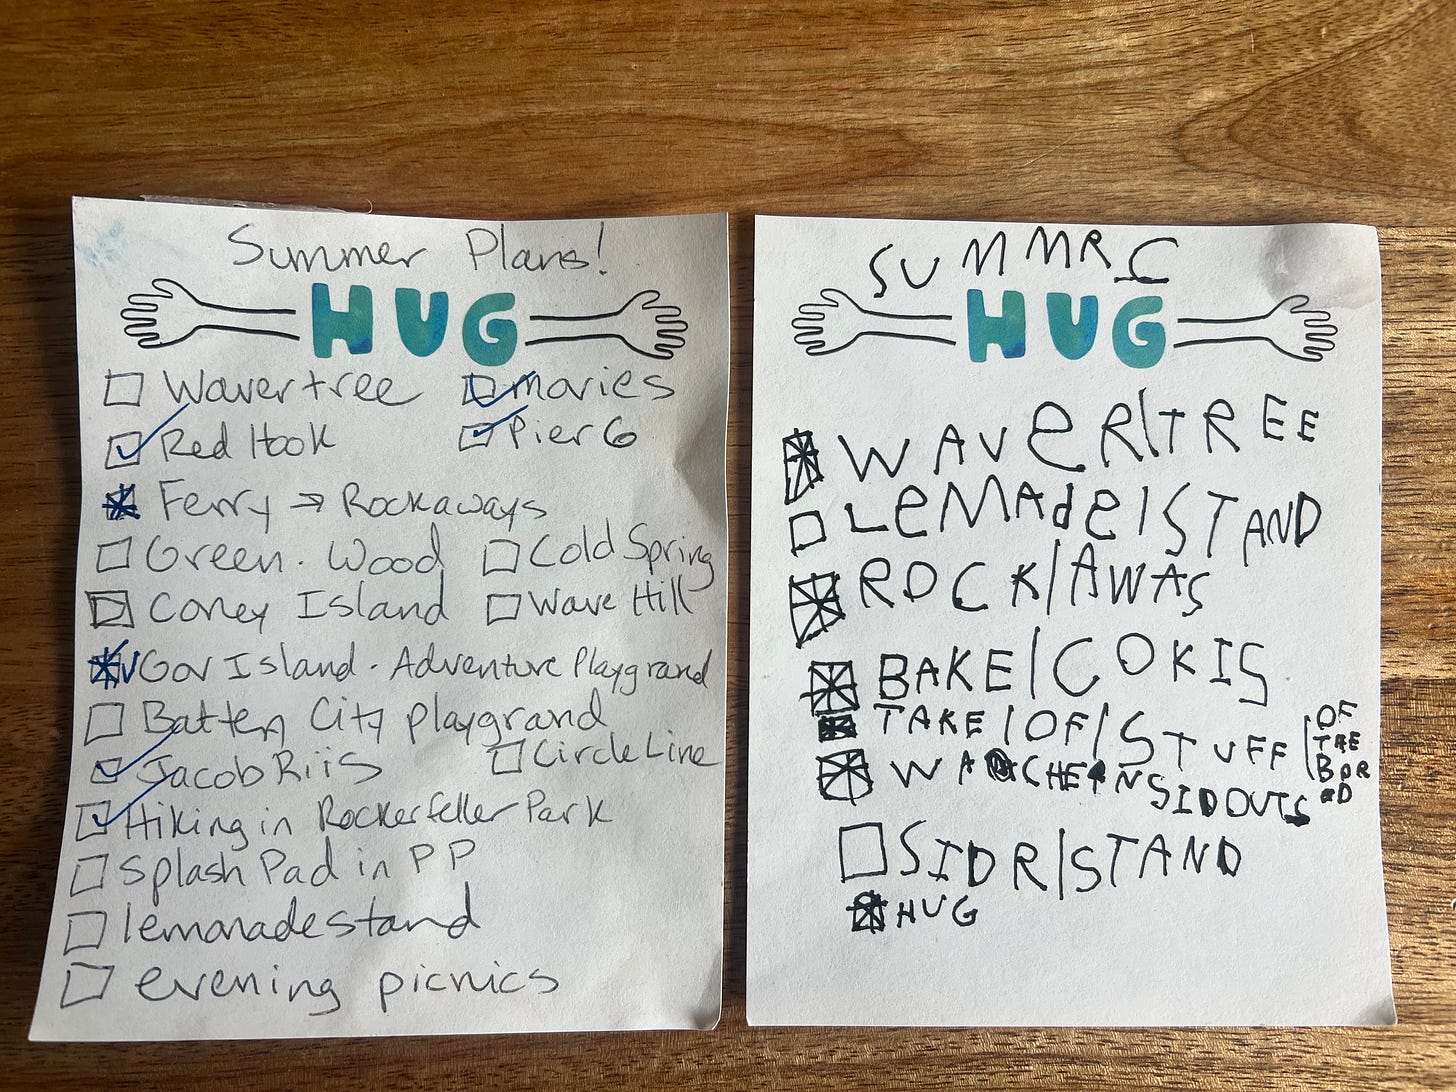 Summer Plans!
HUG
Wavertree movies
Red Hook Pier 6
Ferry → Rockaways
Green.Wood Cold Spring
Coney Island Wave Hill
Gov Island. Adventure Playground
Battery City playground
Jacob Riis Circle Line
Hiking in Rockerfeller Park
Splash Pad in PP
lemonade stand
evening picnics
SUMMR
HUG
WAVER|TREE
LEMADE|STAND
ROCK|AWAS
BAKE|COKIS
TAKE|OF|STUFF |OF
THE
BOR
D
SIDOUTS
SIDR|STAND
HUG